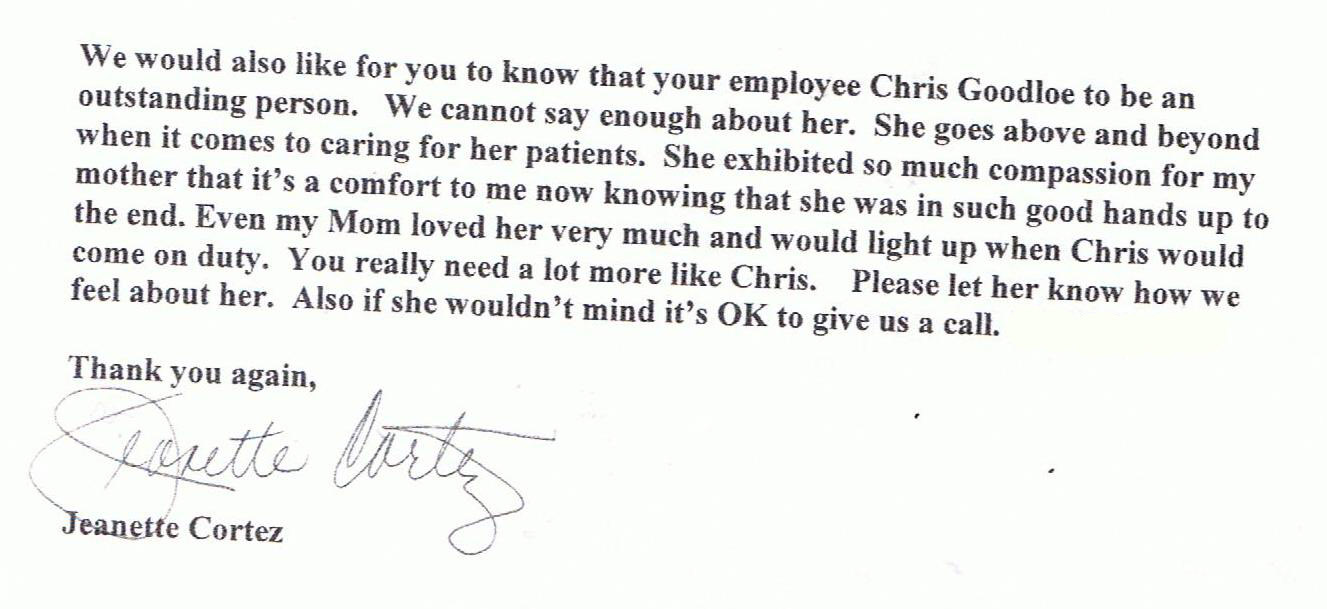 We would also like for you to know that your employee Chris Goodloe to be an
outstanding person.   We cannot say enough about her.  She goes above and beyond
when it comes to caring for her patients.  She exhibited so much compassion for my
mother that it’s a comfort to me now knowing that she was in such good hands up to
the end. Even my Mom loved her very much and would light up when Chris would
come on duty.  You really need a lot more like Chris.   Please let her know how we
feel about her.  Also if she wouldn’t mind it’s OK to give us a call.
Thank you again,
Jeanette Cortez
Jeanette Cortez